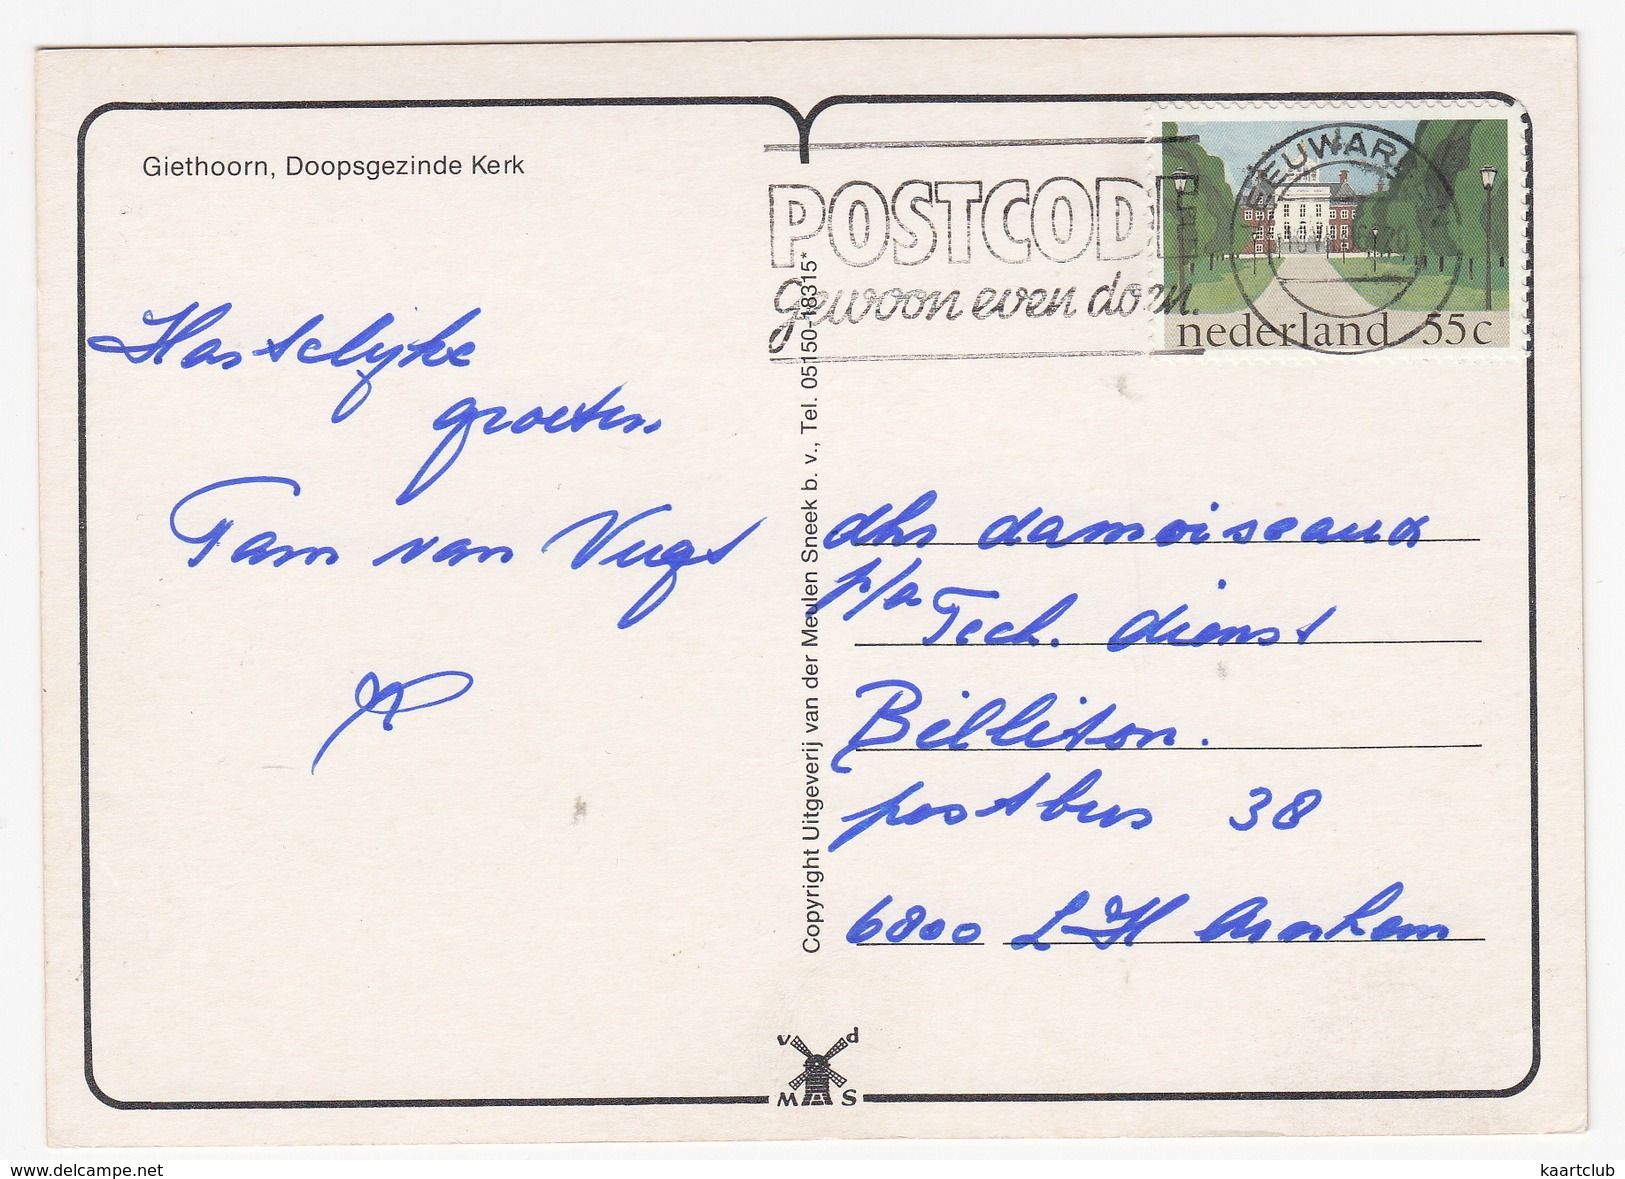 Giethoorn, Doopsgezinde Kerk
POSTCODE
gewoon even doen.
nederland 55c
Hartelijke
groeten.
Fam van Vugt
Copyright Uitgeverij van der Meulen Sneek b. v., Tel. 05150-18315*
dhr damoiseaux
p/a Tech. dienst
Billiton.
postbus 38
6800 LH Arnhem
v d
M S
www.delcampe.net
kaartclub